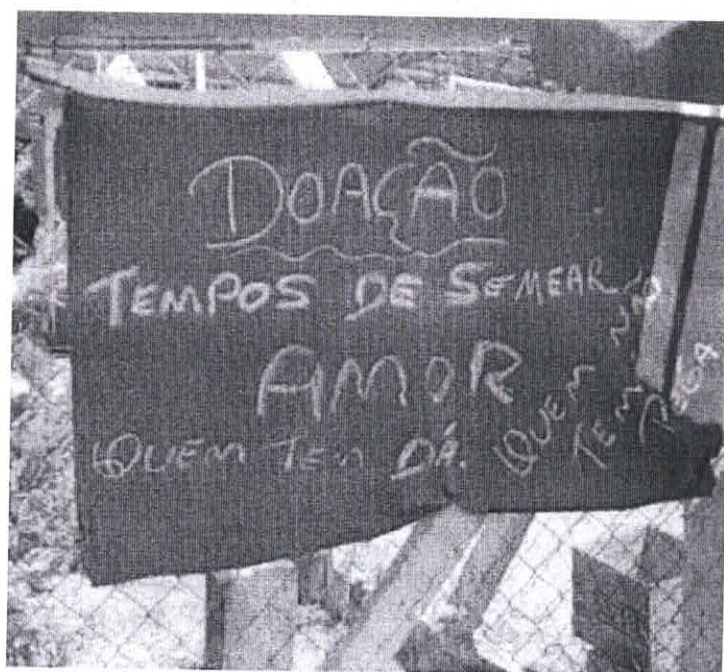 DOAÇÃO
TEMPOS DE SEMEAR
AMOR
QUEM TEM DÁ.
QUEM NÃO
TEM PEGA